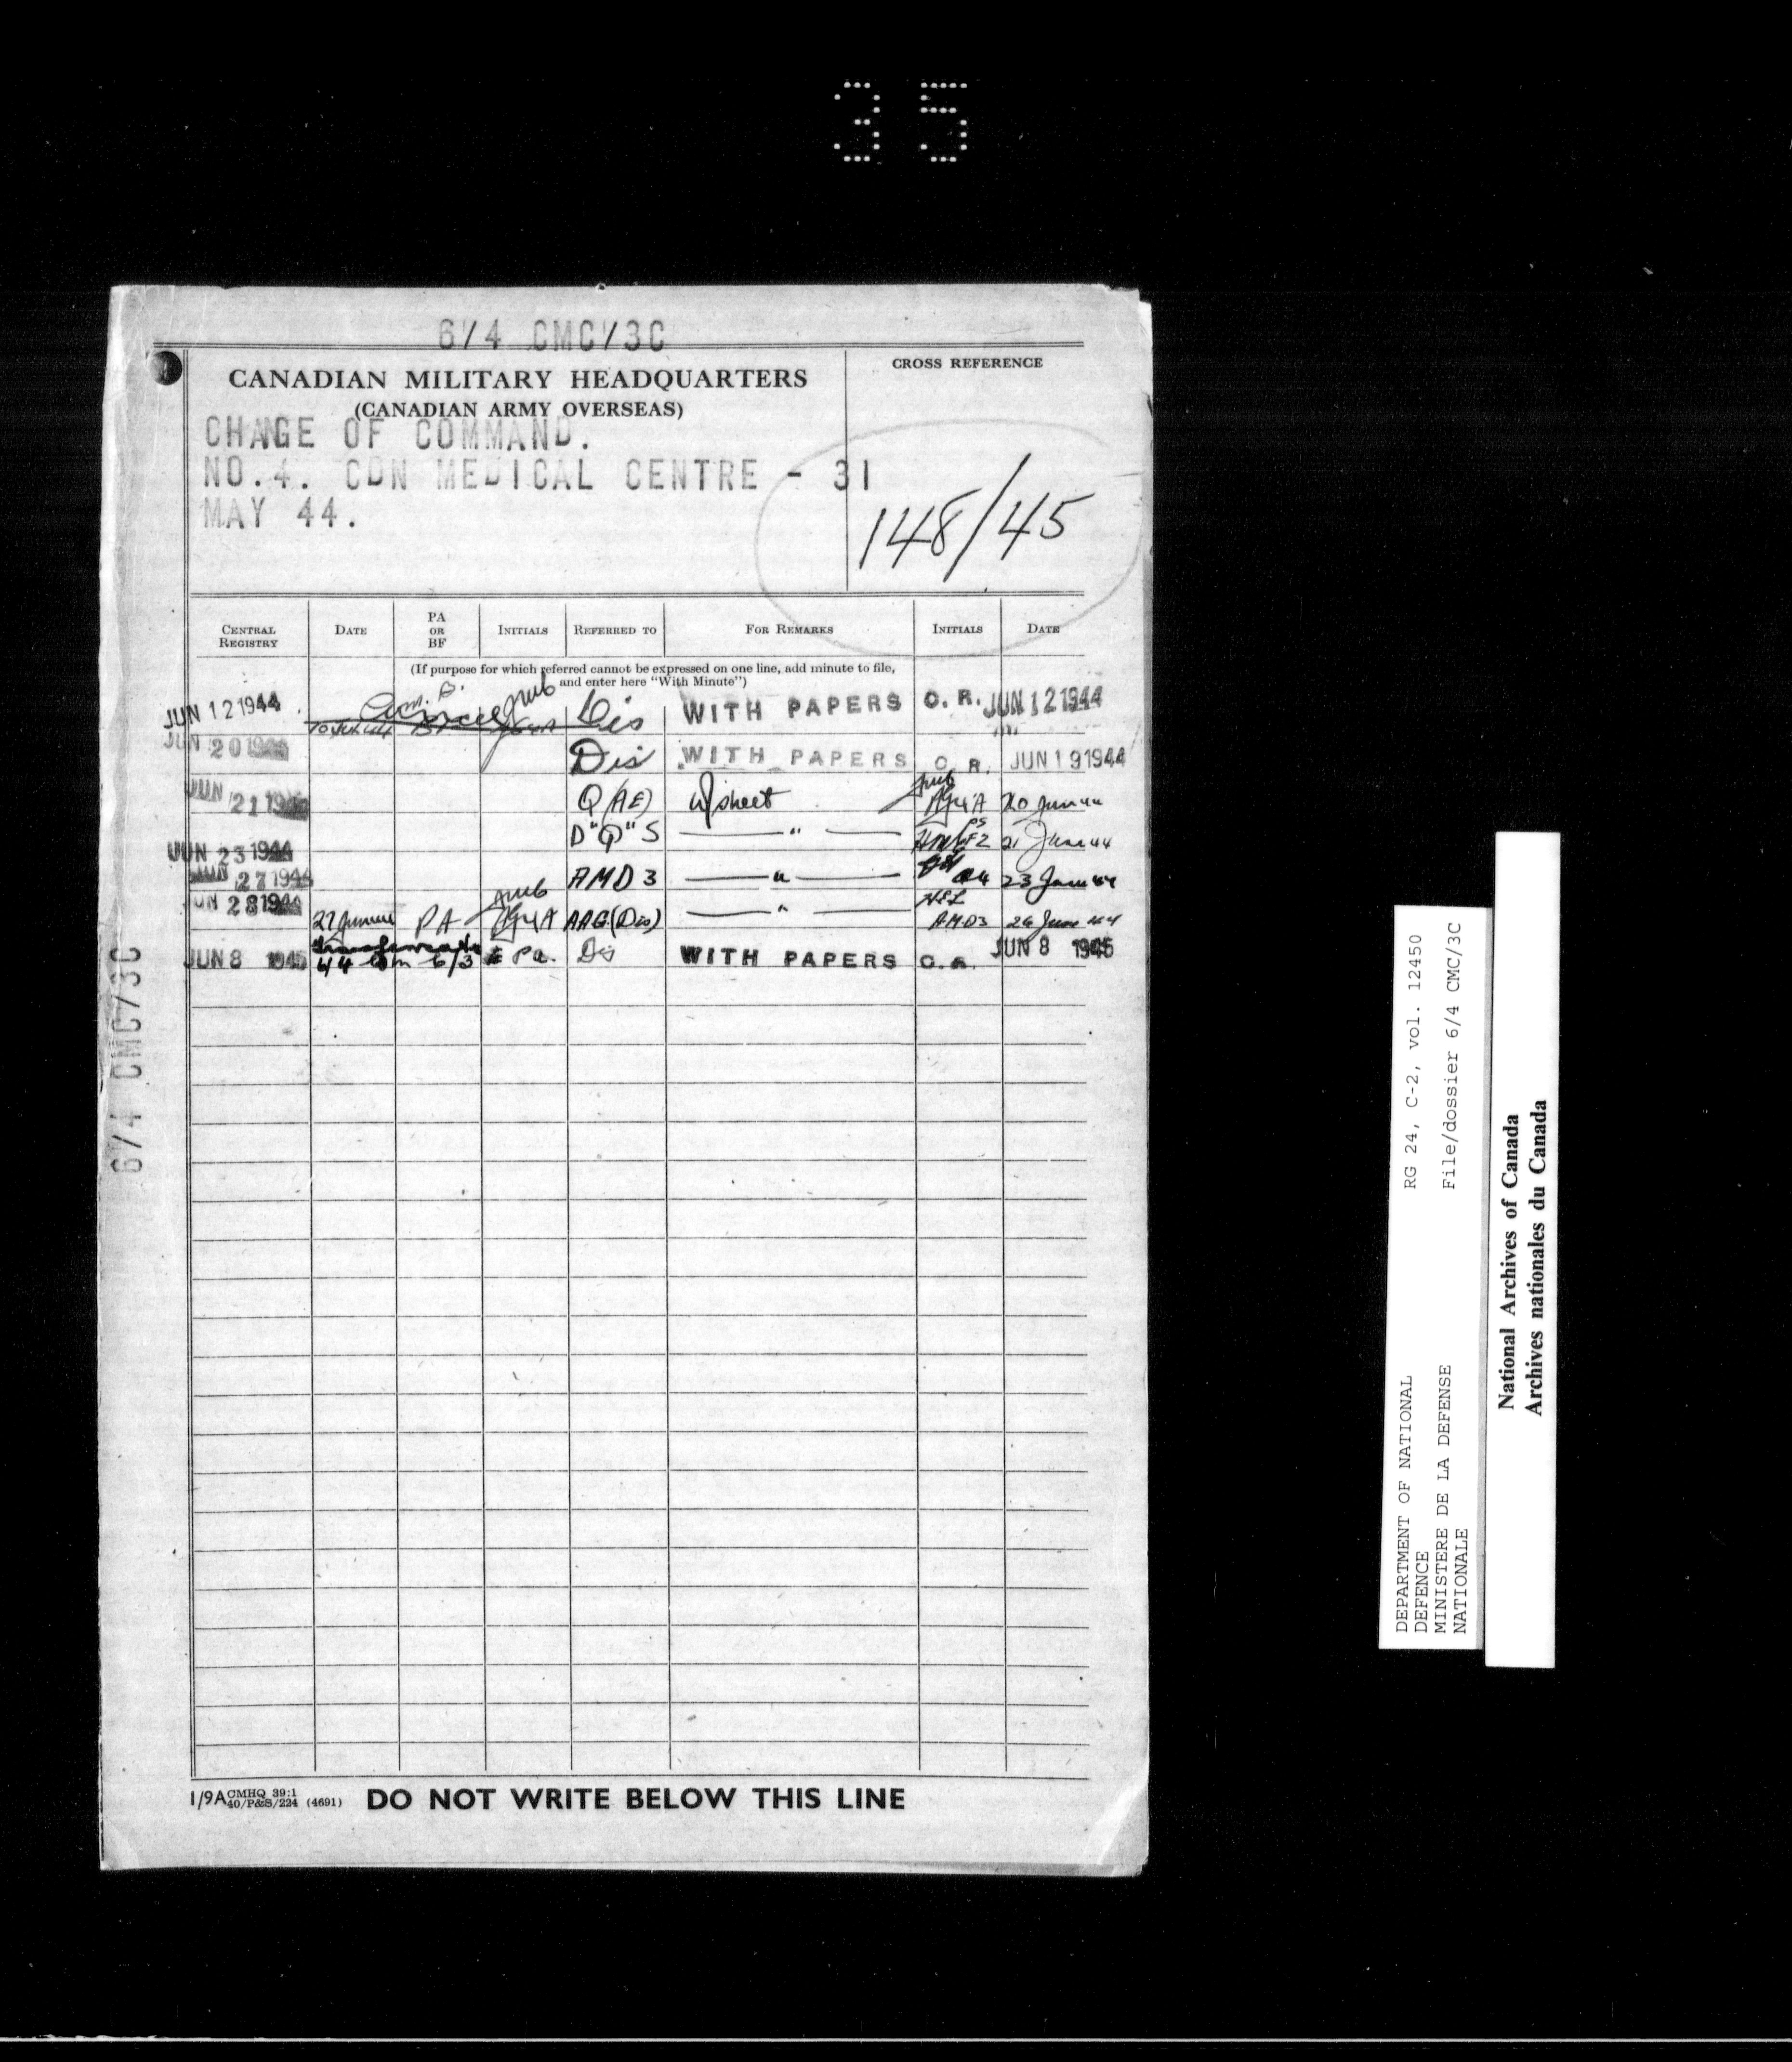 35
6/4 CMC/3C
CANADIAN MILITARY HEADQUARTERS
(CANADIAN ARMY OVERSEAS)
CROSS REFERENCE
CHAGE OF COMMAND.
NO.4. CDN MEDICAL CENTRE - 31
MAY 44.
148/45
CENTRAL REGISTRY DATE PA OR BF INITIALS REFERRED TO FOR REMARKS INITIALS DATE
(If purpose for which referred cannot be expressed on one line, add minute to file,
and enter here "With Minute")
JUN 12 1944 Dis WITH PAPERS C. R. JUN 12 1944
JUN 20 1944 Dis WITH PAPERS C. R. JUN 19 1944
JUN 21 1944 Q (AE) w/sheet 20 June 44
D "Q" S — " — 21 June 44
JUN 23 1944
JUN 27 1944 AMD 3 — " — 23 June 44
JUN 28 1944 27 June PA AAG (Dis) — " — AMD3 26 June 44
JUN 8 1945 6/3 Pa. Dis WITH PAPERS C. R. JUN 8 1945
6/4 CMC/3C
1/9A CMHQ 39:1
40/P&S/224 (4691)
DO NOT WRITE BELOW THIS LINE
DEPARTMENT OF NATIONAL
DEFENCE
MINISTERE DE LA DEFENSE
NATIONALE
RG 24, C-2, vol. 12450
File/dossier 6/4 CMC/3C
National Archives of Canada
Archives nationales du Canada